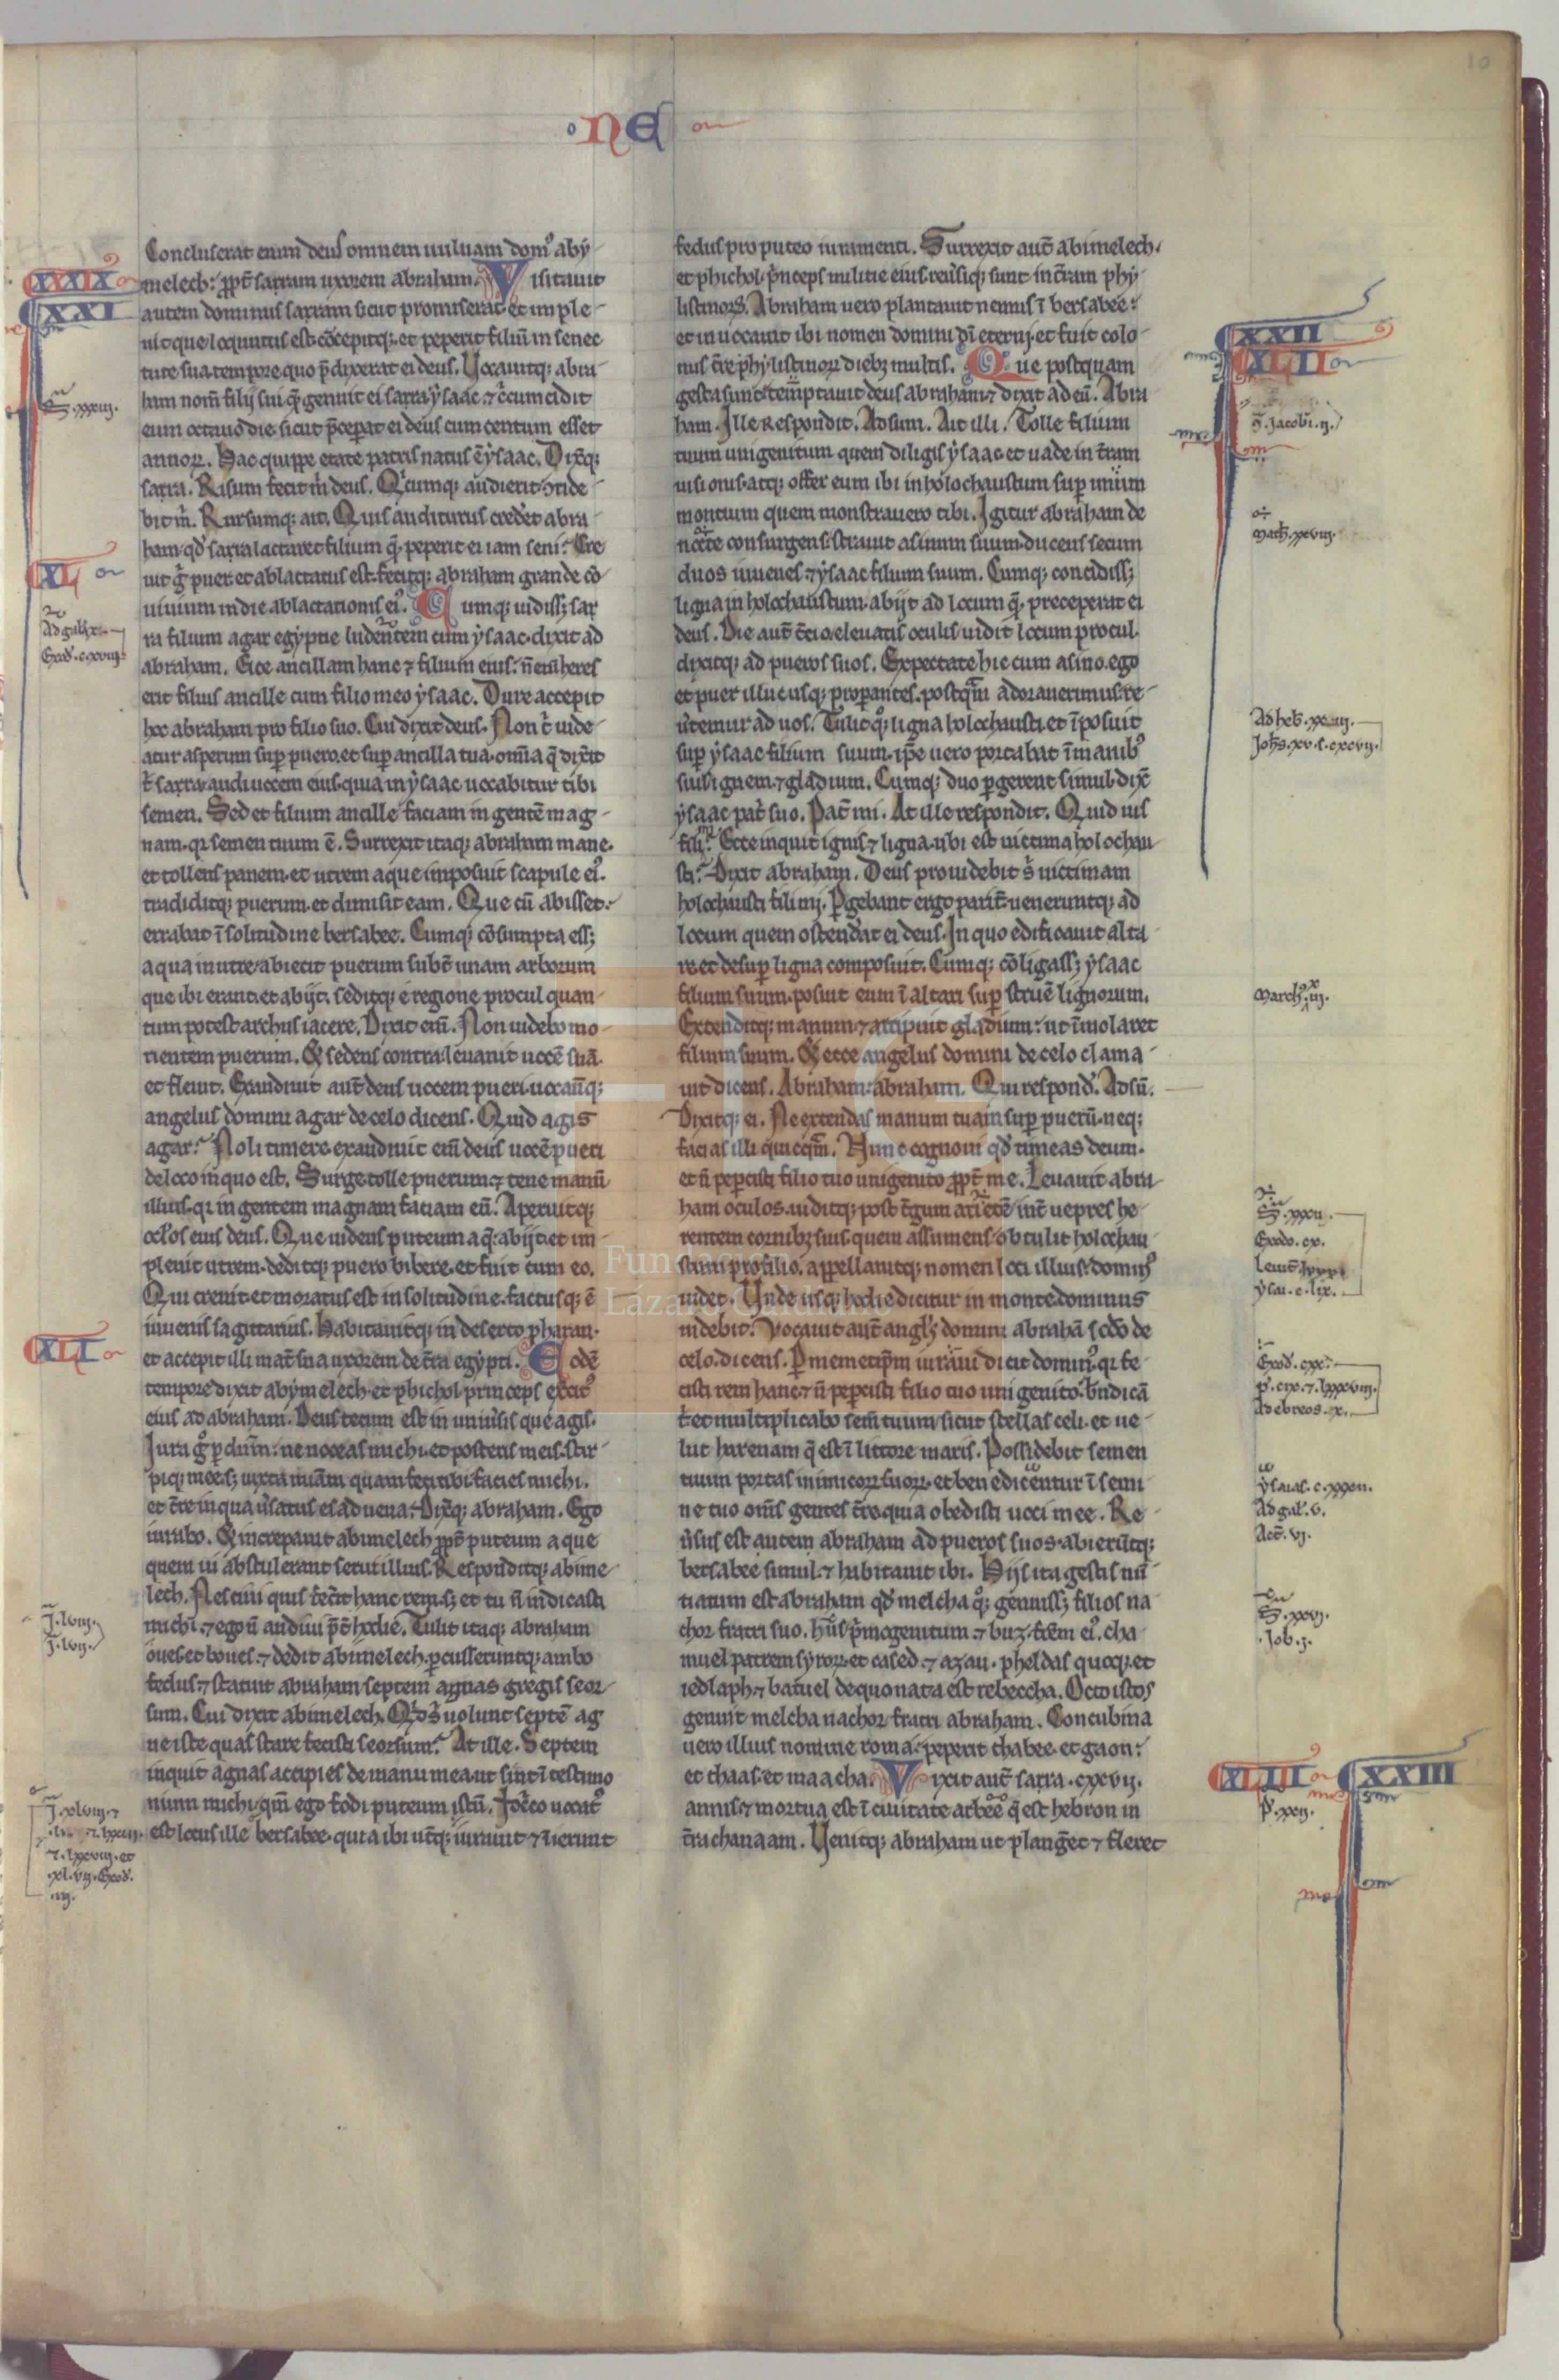 NE
10
Concluserat enim deus omnem uuluam dom᷒ aby
melech: ꝓpt̄ sarram uxorem abraham. Visitauit
autem dominus sarram sicut promiserat et imple
uitque locutus est. cōcepitqꝫ et peperit filiū in senec
tute sua tempore quo p̄dixerat ei deus. Uocauitqꝫ abra
ham nom̄ filij sui q̄ genuit ei sarra ysaac. ⁊ c̄cumcidit
eum octauo die sicut p̄ceperat ei deus cum centum esset
annoꝝ. Hac quippe etate patris natus ē ysaac. Dix̄qꝫ
sarra. Risum fecit m̄ deus. Q̄cumqꝫ audierit ꝯride
bit m̄. Rursumqꝫ ait. Quis auditurus crederet abra
ham qđ sarra lactaret filium q̄ peperit ei iam seni? Cre
uit ḡ puer et ablactatus est. fecitqꝫ abraham grande cō
uiuium in die ablactationis ei᷒. Cumqꝫ uidissꝫ sar
ra filium agar egyptie ludentem cum ysaac. dixit ad
abraham. Eice ancillam hanc ⁊ filium eius. n̄ enim heres
erit filius ancille cum filio meo ysaac. Dure accepit
hoc abraham pro filio suo. Cui dixit deus. Non t̄ uide
atur asperum sup̄ puero et sup̄ ancilla tua. omīa q̄ dix̄it
t̄ sarra audi uocem eius. quia in ysaac uocabitur tibi
semen. Sed et filium ancille faciam in gentē mag
nam. qꝛ semen tuum ē. Surrexit itaqꝫ abraham mane.
et tollens panem et utrem aque imposuit scapule ei᷒.
tradiditqꝫ puerum et dimisit eam. Que cū abisset.
errabat ī solitudine bersabee. Cumqꝫ cōsumpta essꝫ
aqua in utre. abiecit puerum subt̄ unam arborum
que ibi erant. et abijt. seditqꝫ e regione procul quan
tum potest archus iacere. Dixit enī. Non uidebo mo
rientem puerum. Et sedens contra leuauit uocē suā.
et fleuit. Exaudiuit aut̄ deus uocem pueri. uocauitqꝫ
angelus domini agar de celo dicens. Quid agis
agar? Noli timere. exaudiuit enī deus uocē pueri
de loco in quo est. Surge tolle puerum ⁊ tene manū
illius. qꝛ in gentem magnam faciam eū. Aperuitqꝫ
oc̄los eius deus. Que uidens puteum aq̄. abijt et im
pleuit utrem. deditqꝫ puero bibere. et fuit cum eo.
Qui creuit et moratus est in solitudine. factusqꝫ ē
iuuenis sagittarius. Habitauitqꝫ in deserto pharan.
et accepit illi mat̄ sua uxorem de t̄ra egypti. Eodē
tempore dixit abymelech et phichol princeps ex̄cit᷒
eius ad abraham. Deus tecum est in uniūsis que agis.
Iura ḡ ꝑ dn̄m. ne noceas michi et posteris meis. stir
piqꝫ mee. sꝫ iuxta miām quam feci tibi facies michi.
et t̄re in qua ūsatus es aduena. Dix̄qꝫ abraham. Ego
iurabo. Et increpauit abimelech ꝓpt̄ puteum aque
quem ui abstulerant serui illius. Responditqꝫ abime
lech. Nesciui quis fec̄it hanc rem. sꝫ et tu n̄ indicasti
michi. ⁊ ego n̄ audiui p̄t̄ hodie. Tulit itaqꝫ abraham
oues et boues. ⁊ dedit abimelech. ꝑcusseruntqꝫ ambo
fedus. ⁊ statuit abraham septem agnas gregis seor
sum. Cui dixit abimelech. Q̄d s̄ uolunt septē ag
ne iste quas stare fecisti seorsum? At ille. Septem
inquit agnas accipies de manu mea. ut sint ī testimo
nium michi. qm̄ ego fodi puteum istū. Idc̄co uocat᷒
est locus ille bersabee. quia ibi ut̄qꝫ iurauit ⁊ inierunt
fedus pro puteo iuramenti. Surrexit aut̄ abimelech.
et phichol p̄nceps militie eius. reūsiqꝫ sunt in t̄ram phy
listinoꝝ. Abraham uero plantauit nemus ī bersabee:
et inuocauit ibi nomen domini dī eterni. et fuit colo
nus t̄re phylistinoꝝ diebꝫ multis. Que postquam
gesta sunt. temptauit deus abraham. ⁊ dixit ad eū. Abra
ham. Ille respondit. Adsum. Ait illi. Tolle filium
tuum unigenitum quem diligis ysaac et uade in t̄ram
uisionis. atqꝫ offer eum ibi in holochaustum sup̄ unum
montium quem monstrauero tibi. Igitur abraham de
nocte consurgens. strauit asinum suum. ducens secum
duos iuuenes. ⁊ ysaac filium suum. Cumqꝫ concidissꝫ
ligna in holochaustum. abijt ad locum q̄ preceperat ei
deus. Die aut̄ t̄cio eleuatis oculis uidit locum procul.
dixitqꝫ ad pueros suos. Expectate hic cum asino. ego
et puer illuc usqꝫ properantes. postq̄m adorauerimus. re
ūtemur ad uos. Tulit qꝫ ligna holochausti. et īposuit
sup̄ ysaac filium suum. ip̄e uero portabat ī manib᷒
suis ignem. ⁊ gladium. Cumqꝫ duo ꝑgerent simul. dix̄
ysaac pat̄ suo. Pat̄ mi. At ille respondit. Quid uis
fili? Ecce inquit ignis ⁊ ligna. ubi est uictima holochau
sti? Dixit abraham. Deus prouidebit s̄ uictimam
holochausti fili mi. Pergebant ergo parit̄. ueneruntqꝫ ad
locum quem ostenderat ei deus. In quo edificauit alta
re. et desup̄ ligna composuit. Cumqꝫ cōligassꝫ ysaac
filium suum. posuit eum ī altari sup̄ struē lignorum.
Extenditqꝫ manum. ⁊ arripuit gladium: ut īmolaret
filium suum. Et ecce angelus domini de celo clama
uit dicens. Abraham abraham. Qui respond̄. Adsū.
Dixitqꝫ ei. Ne extendas manum tuam sup̄ puerū. neqꝫ
facias illi quicq̄m. Nunc cognoui qđ times deum.
et n̄ peꝑcisti filio tuo unigenito ꝓpt̄ me. Leuauit abra
ham oculos. uiditqꝫ post t̄gum arietē int̄ uepres he
rentem cornibꝫ suis. quem assumens obtulit holochau
stum pro filio. appellauitqꝫ nomen loci illius. domin᷒
uidet. Unde usqꝫ hodie dicitur in monte dominus
uidebit. Vocauit aut̄ angl᷒s domini abrahā scđo de
celo. dicens. P memetip̄m iuraui dicit domin᷒. qꝛ fe
cisti rem hanc. ⁊ n̄ peꝑcisti filio tuo unigenito. bn̄dicā
t̄. et multiplicabo sem̄ tuum sicut stellas celi. et ue
lut harenam q̄ est ī littore maris. Possidebit semen
tuum portas inimicoꝝ suoꝝ. et benedicentur ī semi
ne tuo om̄s gentes t̄re. quia obedisti uoci mee. Re
ūsus est autem abraham ad pueros suos. abierūtqꝫ
bersabee simul. ⁊ habitauit ibi. Hijs ita gestis nū
tiatum est abraham qđ melcha qꝫ genuissꝫ filios na
chor fratri suo. hus p̄mogenitum. ⁊ buz. frēm ei᷒. cha
muel patrem syroꝝ. et cased. ⁊ azau. pheldas quoqꝫ et
iedlaph. ⁊ batuel de quo nata est rebeccha. Octo istos
genuit melcha nachor fratri abraham. Concubina
uero illius nomine roma. peperit thabee. et gaon:
et thaas. et maacha. Vixit aut̄ sarra .cxxvij.
annis. ⁊ mortua est ī ciuitate arbee q̄ est hebron in
t̄ra chanaam. Uenitqꝫ abraham ut planḡet ⁊ fleret
XXXIX
XXI
XL
XLI
J. lviij.
J. lvij.
XXII
XLII
Jacobi. ij.
Exodo. cx.
ysai. c. lix.
Ad ebreos. x.
ysaias. c. xxxii.
Ad gal̄. v.
Act̄. vj.
Job. j.
XLIII
XXIII
p̄. xxij.
Fundación
Lázaro Galdiano